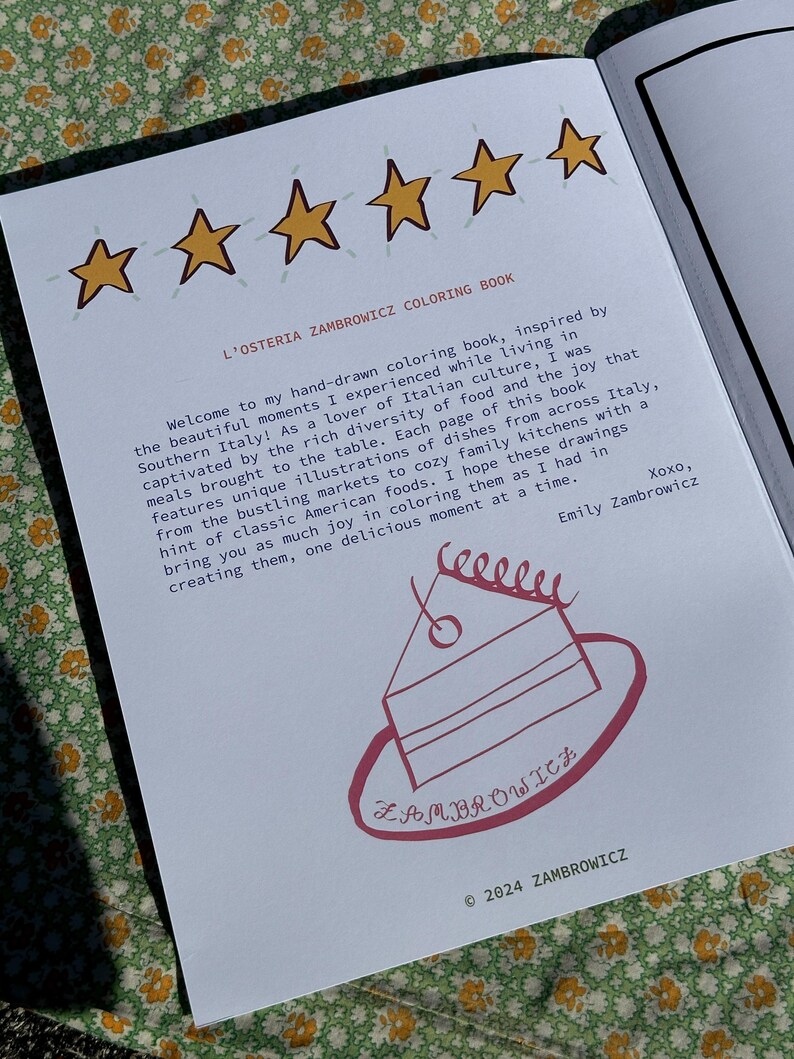 L'OSTERIA ZAMBROWICZ COLORING BOOK
Welcome to my hand-drawn coloring book, inspired by
the beautiful moments I experienced while living in
Southern Italy! As a lover of Italian culture, I was
captivated by the rich diversity of food and the joy that
meals brought to the table. Each page of this book
features unique illustrations of dishes from across Italy,
from the bustling markets to cozy family kitchens with a
hint of classic American foods. I hope these drawings
bring you as much joy in coloring them as I had in
creating them, one delicious moment at a time.
Xoxo,
Emily Zambrowicz
ZAMBROWICZ
© 2024 ZAMBROWICZ